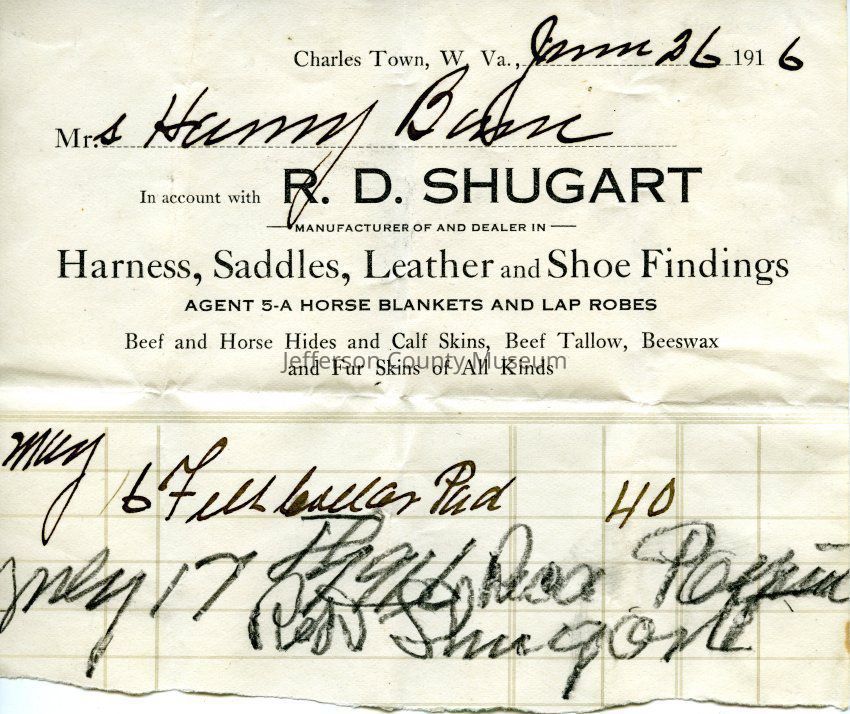 Charles Town, W. Va., June 26 1916
Mrs Harry Bane
In account with R. D. SHUGART
MANUFACTURER OF AND DEALER IN
Harness, Saddles, Leather and Shoe Findings
AGENT 5-A HORSE BLANKETS AND LAP ROBES
Beef and Horse Hides and Calf Skins, Beef Tallow, Beeswax
Jefferson County Museum
and Fur Skins of All Kinds
May
6 Felt Collar Pad 40
July 17 1916
Shugart